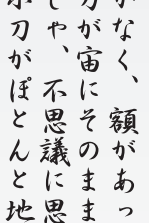 がなく、額があっ
刀が宙にそのまま
しゃ、不思議に思
小刀がぽとんと地